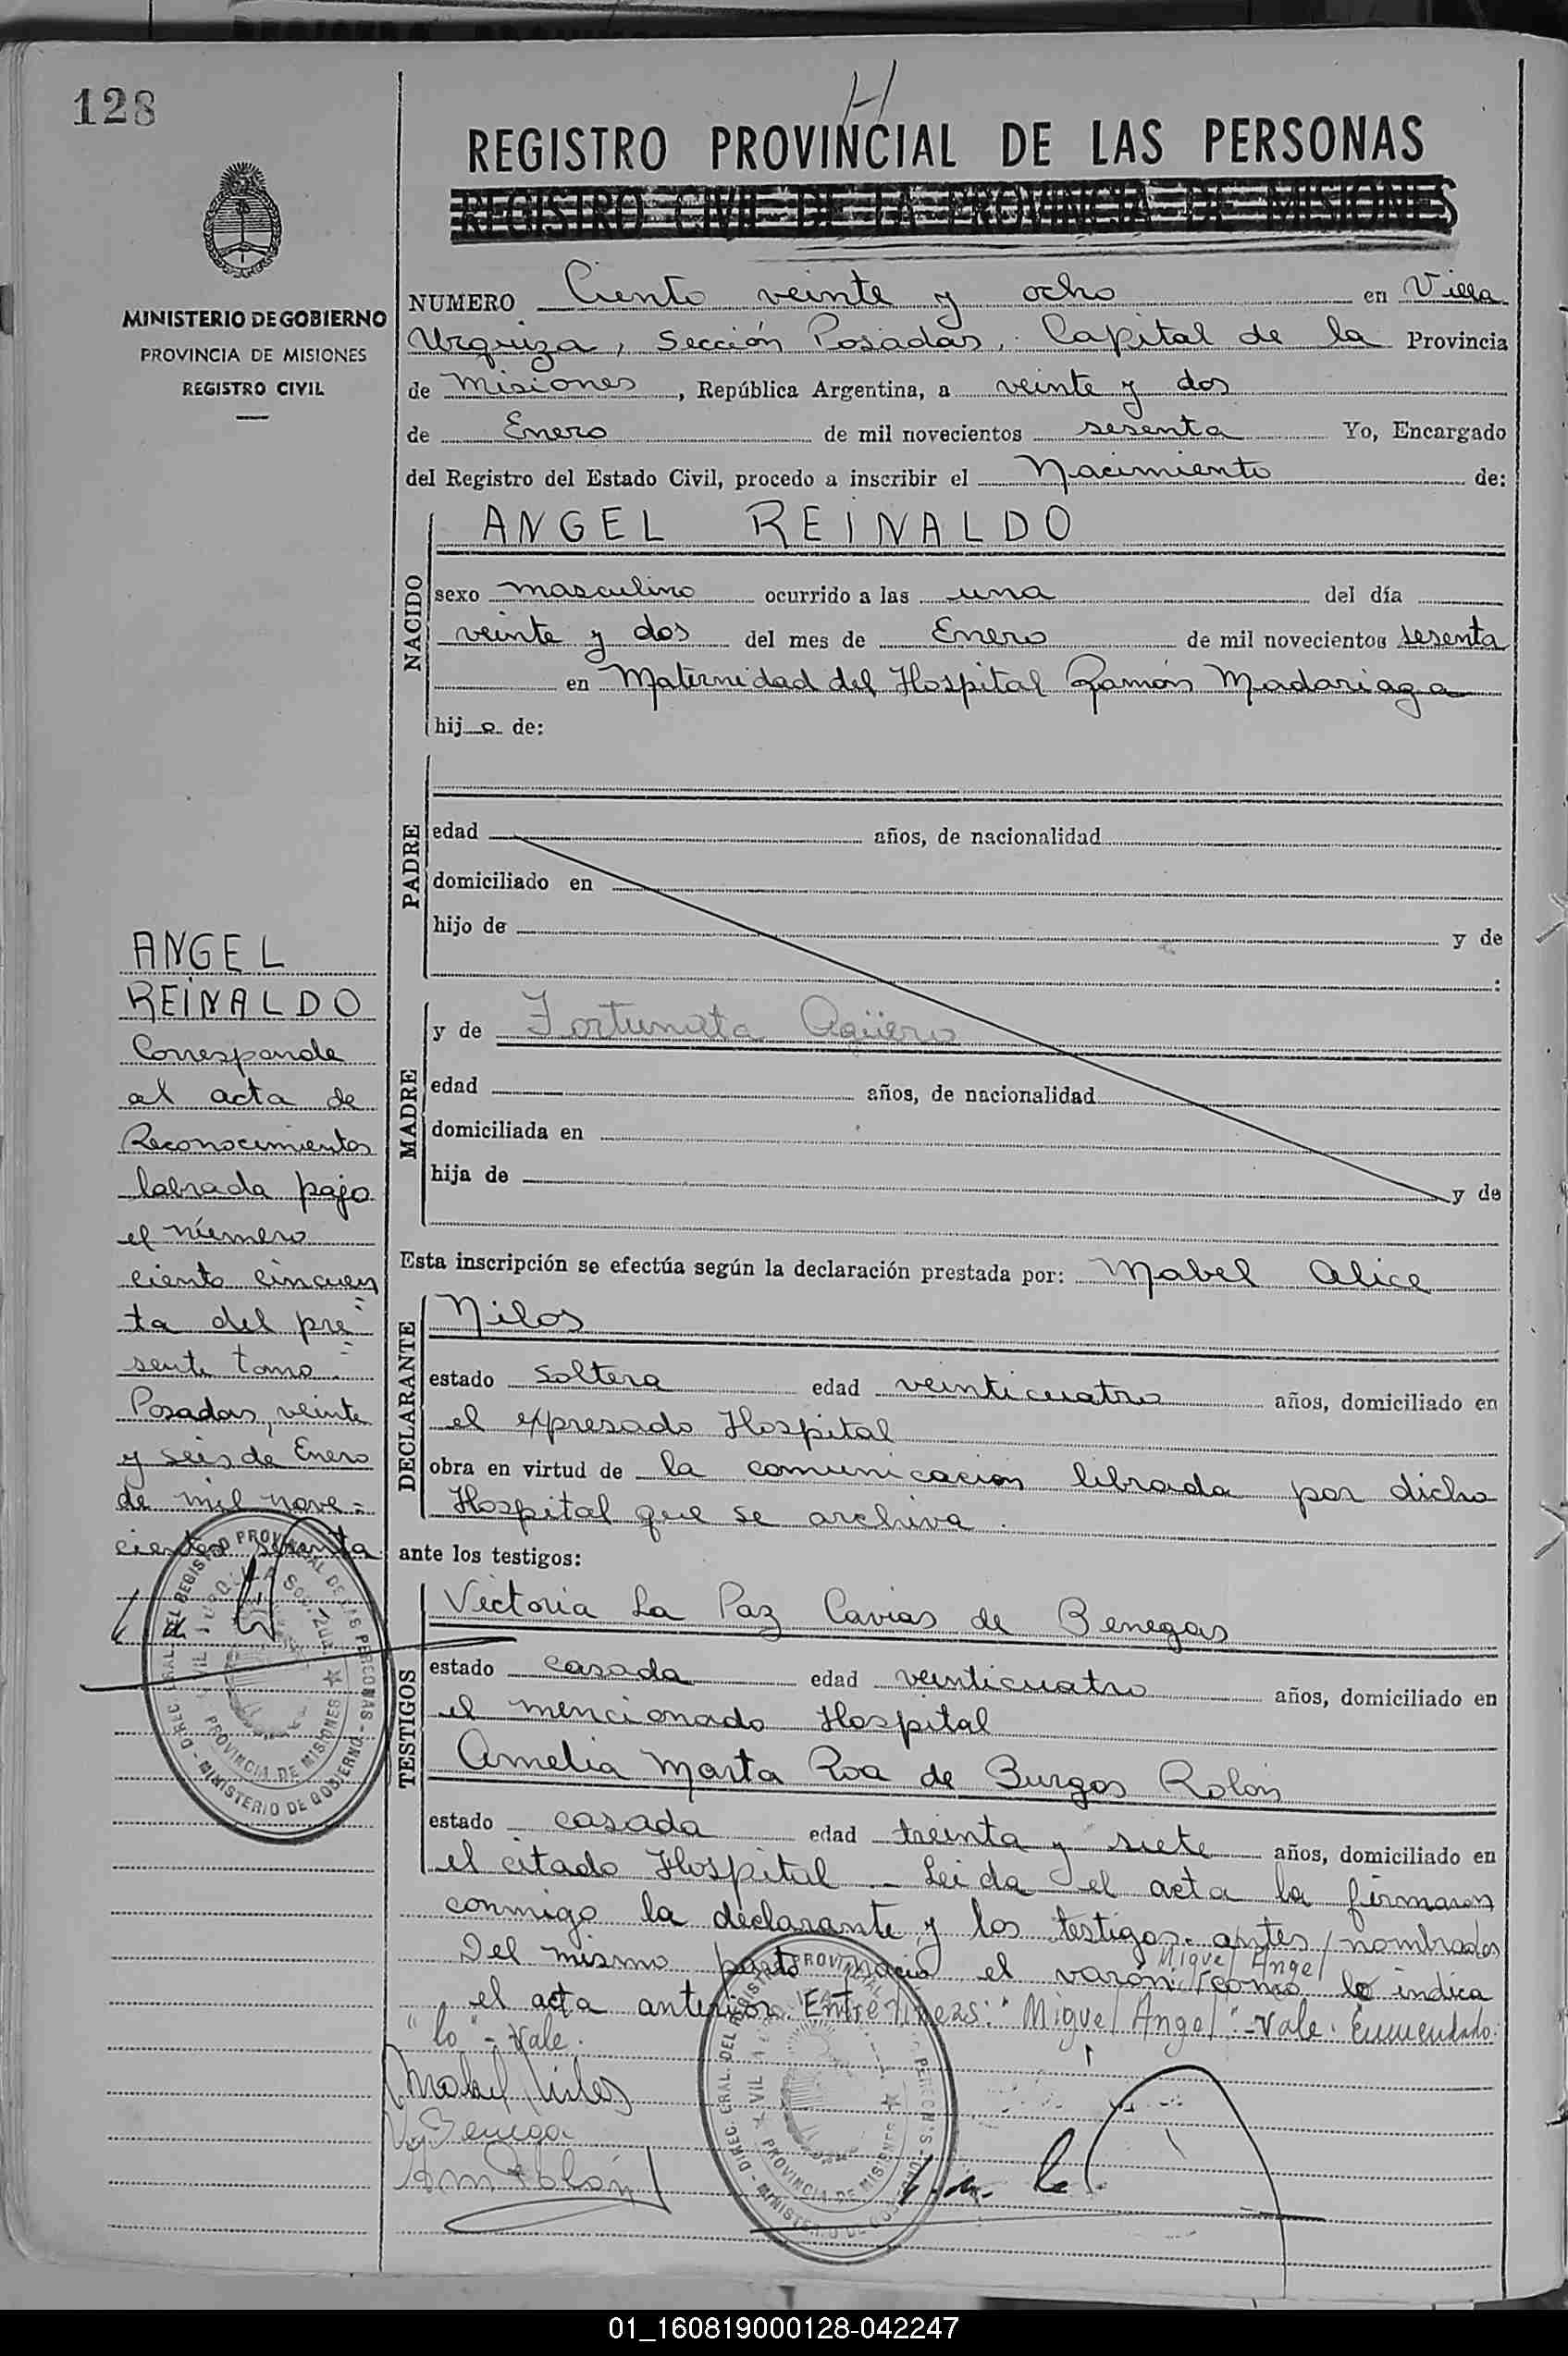 128
H
REGISTRO PROVINCIAL DE LAS PERSONAS
REGISTRO CIVIL DE LA PROVINCIA DE MISIONES
MINISTERIO DE GOBIERNO
PROVINCIA DE MISIONES
REGISTRO CIVIL
NUMERO Ciento veinte y ocho en Villa
Urquiza, Sección Posadas, Capital de la Provincia
de Misiones, República Argentina, a veinte y dos
de Enero de mil novecientos sesenta Yo, Encargado
del Registro del Estado Civil, procedo a inscribir el Nacimiento de:
NACIDO
ANGEL REINALDO
sexo masculino ocurrido a las una del día
veinte y dos del mes de Enero de mil novecientos sesenta
en Maternidad del Hospital Ramón Madariaga
hijo de:
PADRE
edad años, de nacionalidad
domiciliado en
hijo de y de
:
MADRE
y de Fortunata Agüero
edad años, de nacionalidad
domiciliada en
hija de y de
Esta inscripción se efectúa según la declaración prestada por: Mabel Alice
DECLARANTE
Nilos
estado soltera edad veinticuatro años, domiciliado en
el expresado Hospital
obra en virtud de la comunicación librada por dicho
Hospital que se archiva.
ante los testigos:
TESTIGOS
Victoria La Paz Cavias de Benegas
estado casada edad veinticuatro años, domiciliado en
el mencionado Hospital
Amelia Marta Roa de Burgos Rolón
estado casada edad treinta y siete años, domiciliado en
el citado Hospital. - Leida el acta la firmaron
conmigo la declarante y los testigos antes nombrados
Miguel Angel
Del mismo parto nació el varón como lo indica
el acta anterior. Entre líneas: "Miguel Angel" - Vale. Enmendado:
"lo" - Vale.
ANGEL
REINALDO
Corresponde
al acta de
Reconocimientos
labrada pajo
el número
ciento cincuen=
ta del pre=
sente tomo.
Posadas, veinte
y seis de Enero
de mil nove=
cientos sesenta
DIREC. GRAL. DEL REGISTRO PROVINCIAL DE LAS PERSONAS - MINISTERIO DE GOBIERNO
PROVINCIA DE MISIONES
DIREC. GRAL. DEL REGISTRO PROVINCIAL
MINISTERIO DE
PROVINCIA DE MISIONES
01_160819000128-042247